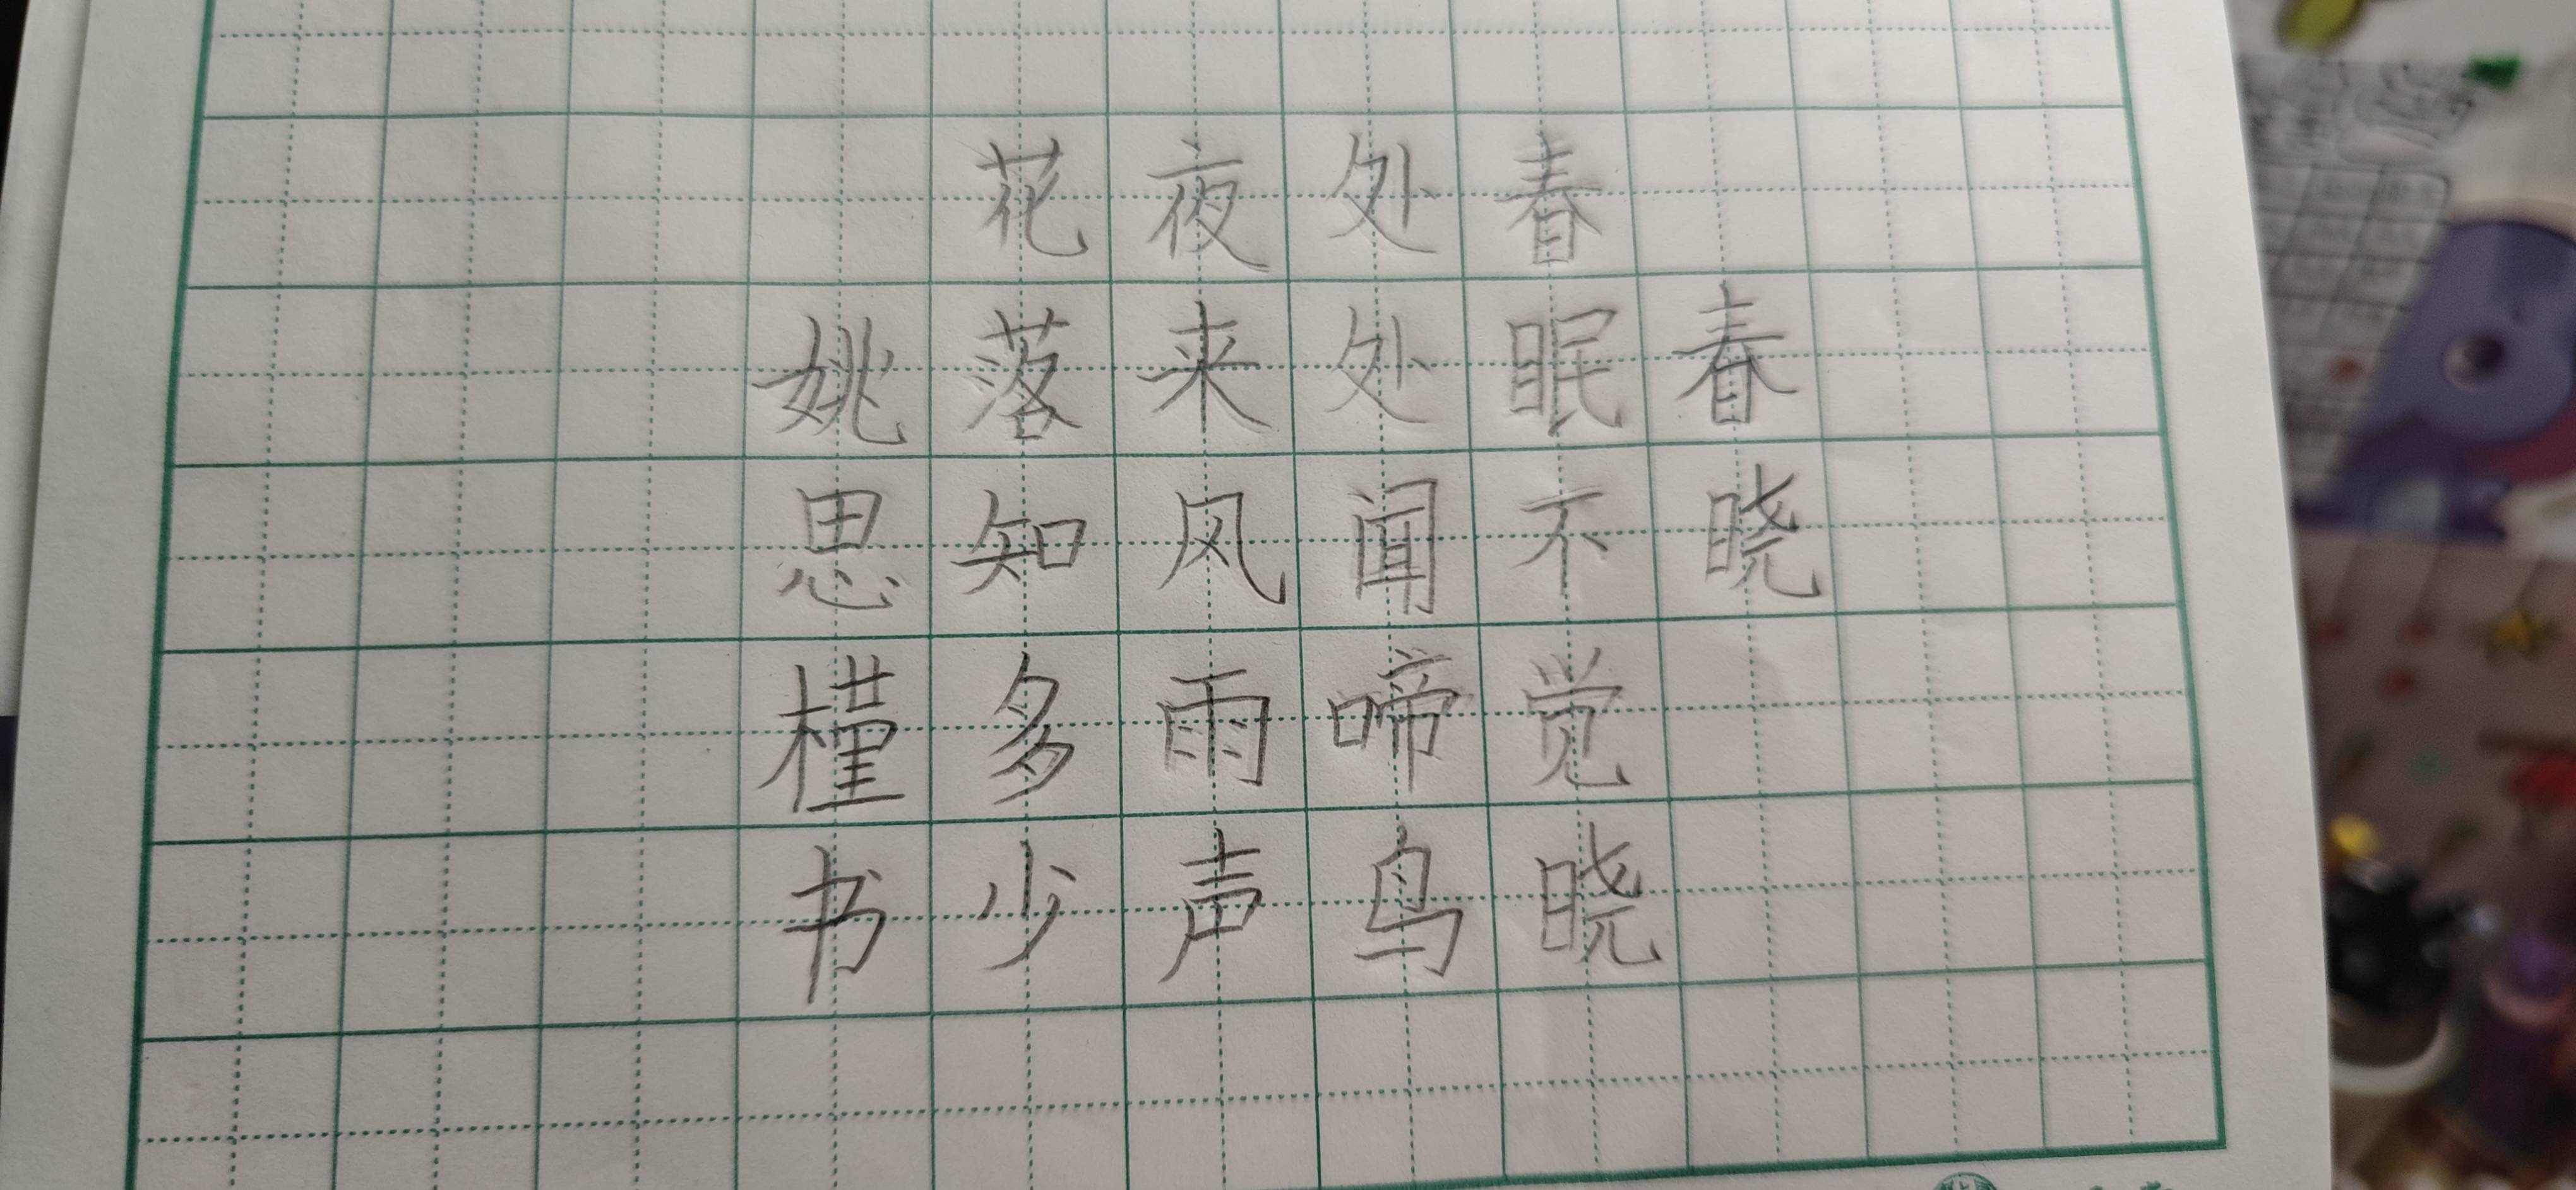 春晓
春眠不觉晓
处处闻啼鸟
夜来风雨声
花落知多少
姚思槿书